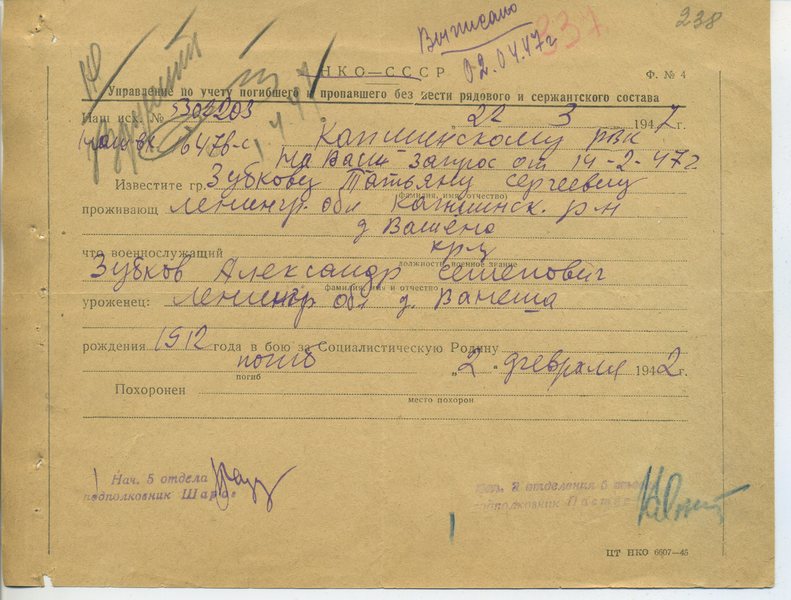 Выписано
02.04.47г
337
238
НКО—СССР
Ф. № 4
Управление по учету погибшего и пропавшего без вести рядового и сержантского состава
Наш исх. № 303203
22 3 1947 г.
6476-с
Капшинскому рвк
на Ваш запрос от 14-2-47г
Известите гр. Зубкову Татьяну Сергеевну
фамилия, имя, отчество)
проживающ Ленингр. обл Капшинск. р-н
д Вашено
что военнослужащий крц
должность, военное звание
Зубков Александр Семенович
фамилия, имя и отчество
уроженец: Ленингр обл д. Ванеша
рождения 1912 года в бою за Социалистическую Родину
погиб „2 " февраля 1942 г.
погиб
Похоронен
место похорон
Нач. 5 отдела
подполковник
2 отделения 5
подполковник
ЦТ НКО 6607—45